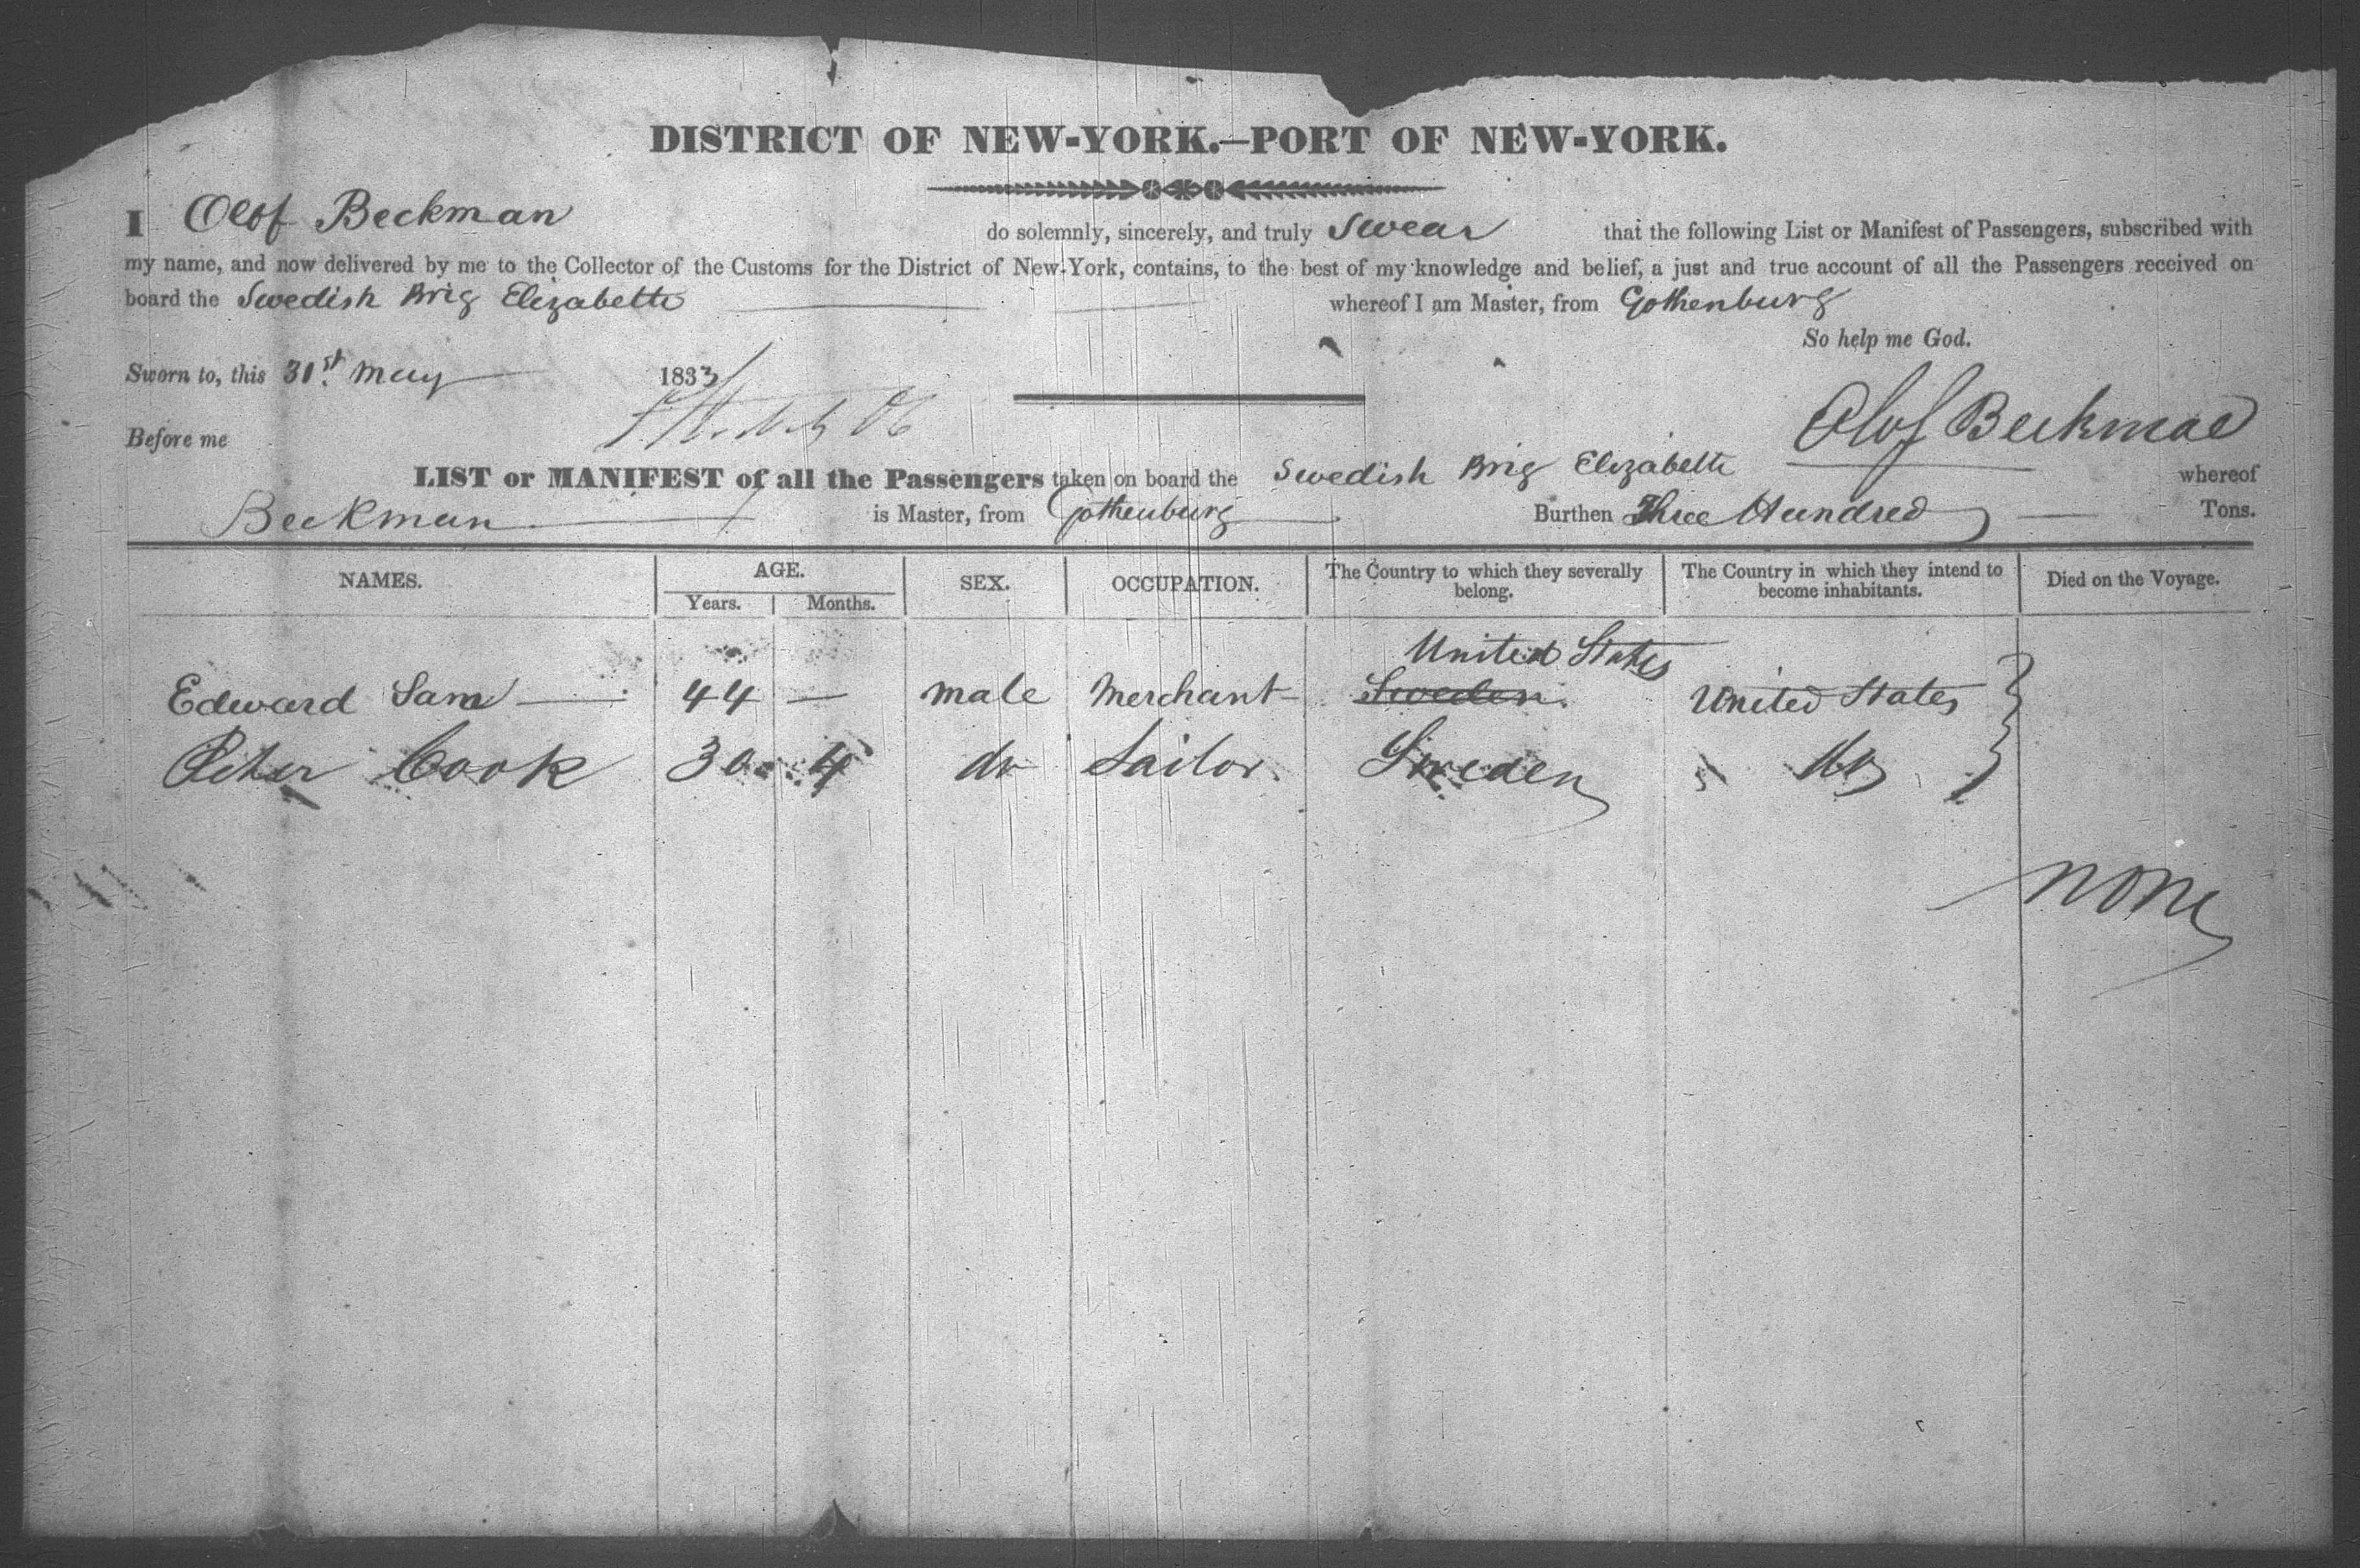 DISTRICT OF NEW-YORK.—PORT OF NEW-YORK.
I Olof Beckman do solemnly, sincerely, and truly Swear that the following List or Manifest of Passengers, subscribed with
my name, and now delivered by me to the Collector of the Customs for the District of New-York, contains, to the best of my knowledge and belief, a just and true account of all the Passengers received on
board the Swedish Brig Elizabeth whereof I am Master, from Gothenburg
So help me God.
Sworn to, this 31st May 1833
Olof Beckman
Before me
LIST or MANIFEST of all the Passengers taken on board the Swedish Brig Elizabeth whereof
Beckman is Master, from Gothenburg Burthen Three Hundred Tons.
NAMES. AGE. SEX. OCCUPATION. The Country to which they severally belong. The Country in which they intend to become inhabitants. Died on the Voyage.
Years. Months.
United States
Edward Sam — 44 — male Merchant Sweden. United States
Peter Cook 30 4 do Sailor Sweden do
none